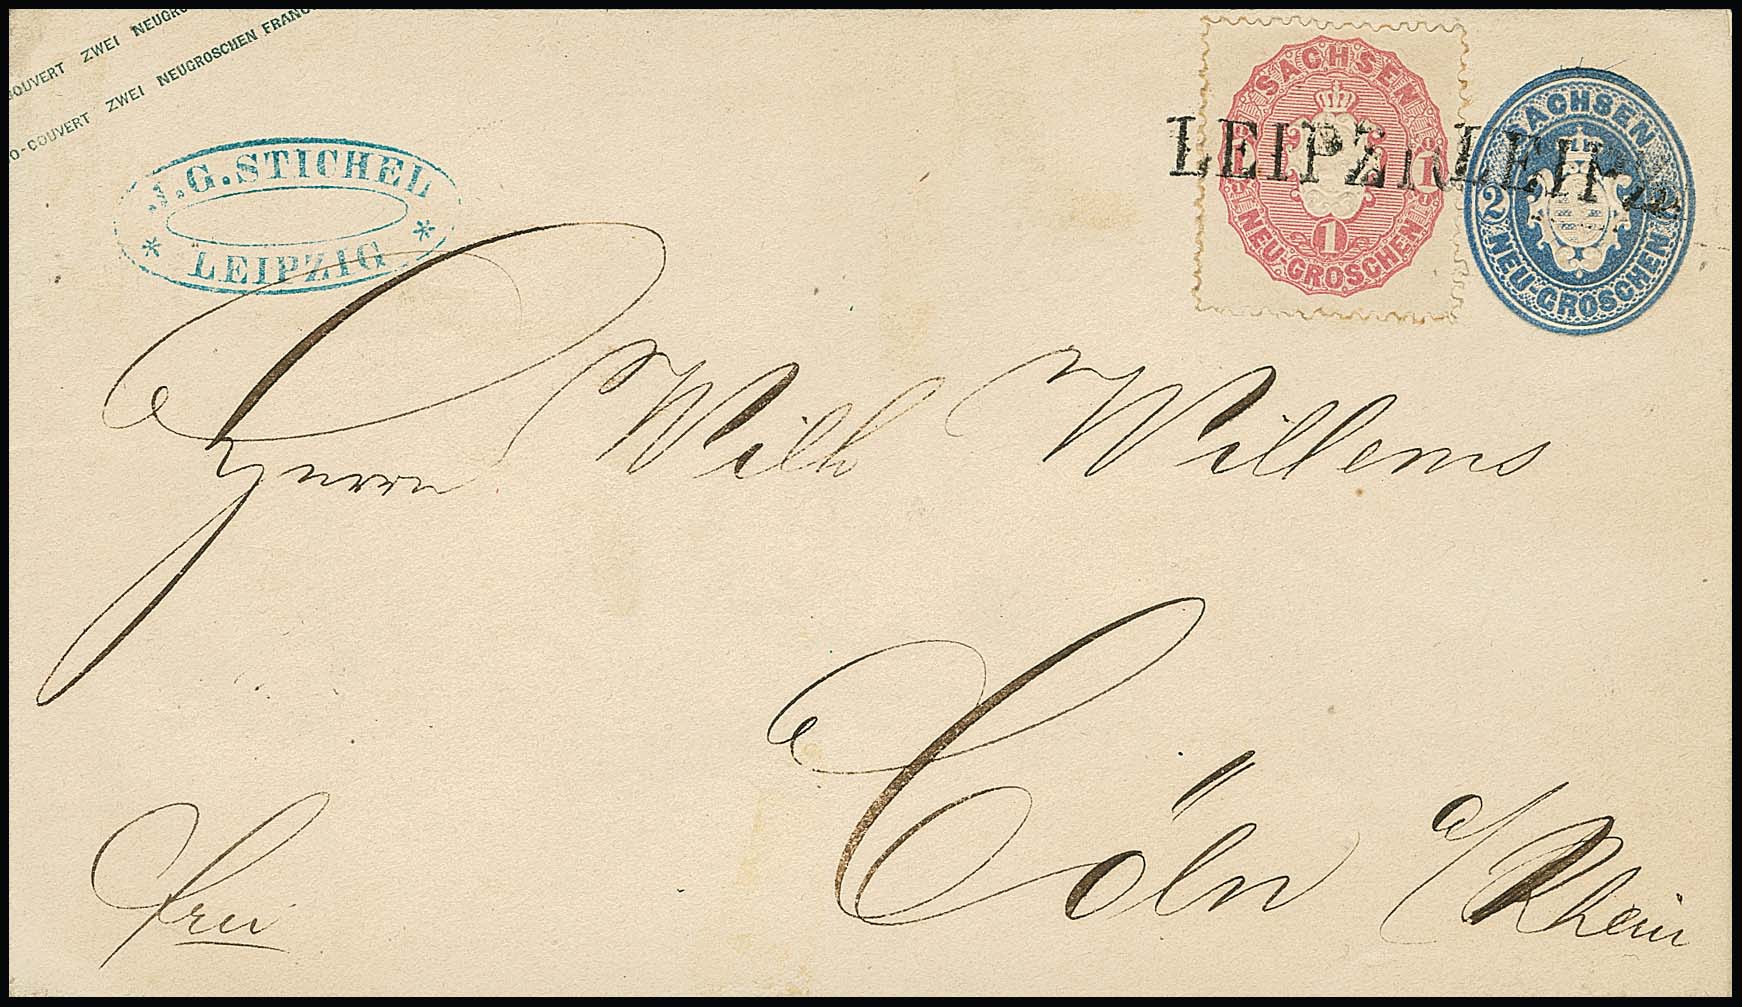 COUVERT ZWEI NEUGRO
O-COUVERT ZWEI NEUGROSCHEN FRANCO
J.G. STICHEL
* LEIPZIG *
SACHSEN
1 1
1
NEU-GROSCHEN
LEIPZIG
SACHSEN
2
NEU-GROSCHEN
LEIPZ
Herrn Wilh Willems
Cöln a/Rhein
frei